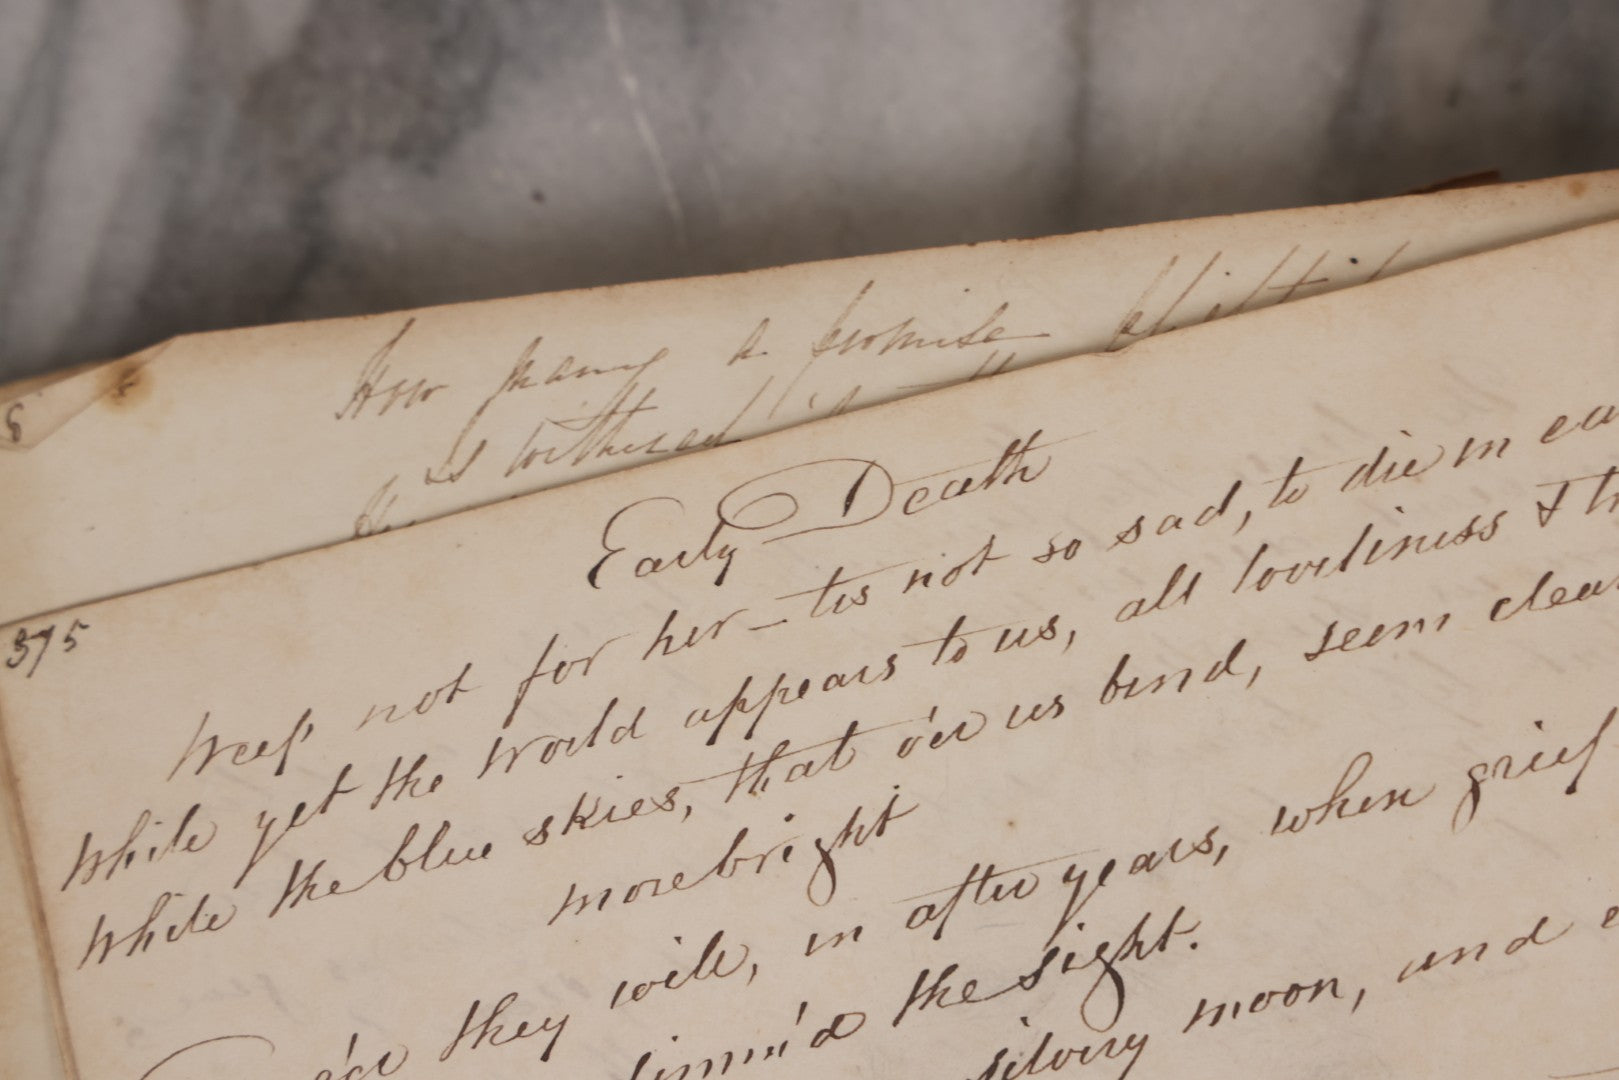 8
How many a promise
Is withered
375
Early Death
Weep not for her – tis not so sad, to die in
While yet the world appears to us, all loveliness &
While the blue skies, that o'er us bend, seem clear
more bright
they will, in after years, when grief
dimm'd the sight.
silvery moon, and